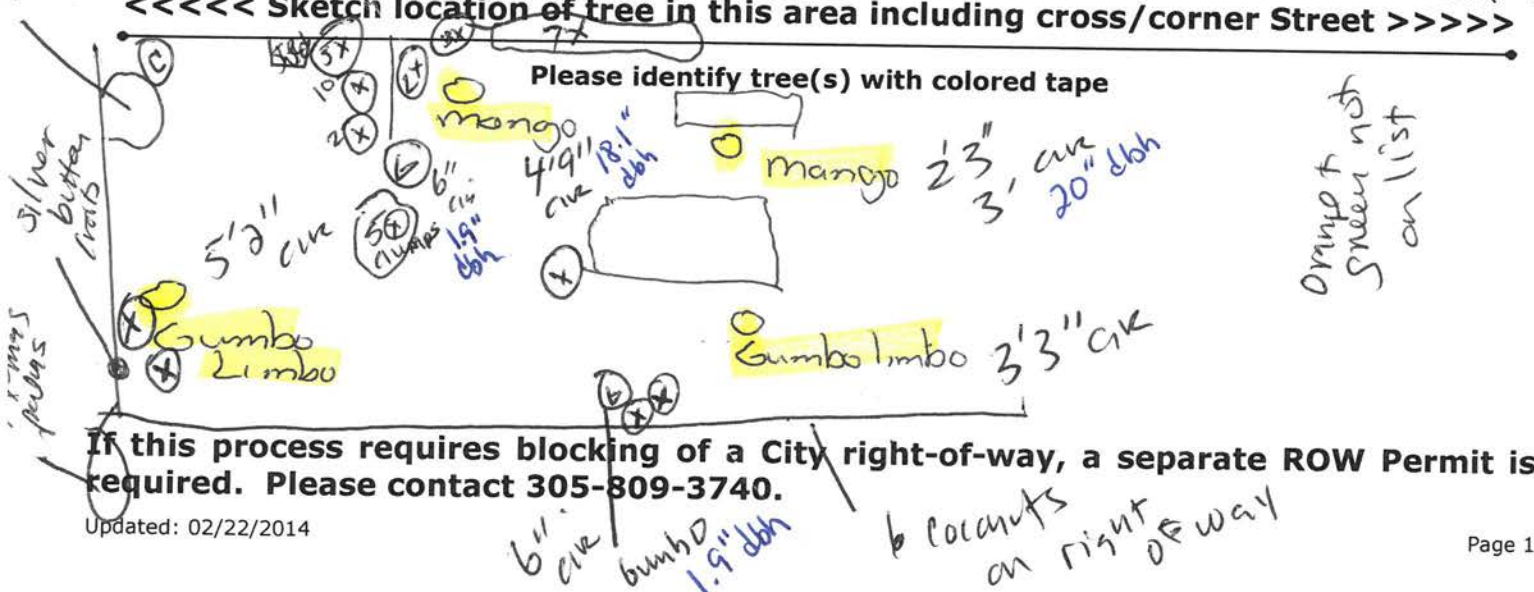 <<<<< Sketch location of tree in this area including cross/corner Street >>>>>
Please identify tree(s) with colored tape
C
5x
10 x
2 x
2+
7x
Mango
4'9" cir
18.1" dbh
Mango
2'3"
3' cir
20" dbh
not on list
silver button
5'2" cir
5 x clumps
b
6" cir
1.9" dbh
x
x
Gumbo
Limbo
x
Gumbo limbo
3'3" cir
x-mas palms
b
x
x
If this process requires blocking of a City right-of-way, a separate ROW Permit is
required. Please contact 305-809-3740.
Updated: 02/22/2014
6" cir
Gumbo
1.9" dbh
6 coconuts
on right
of way
Page 1